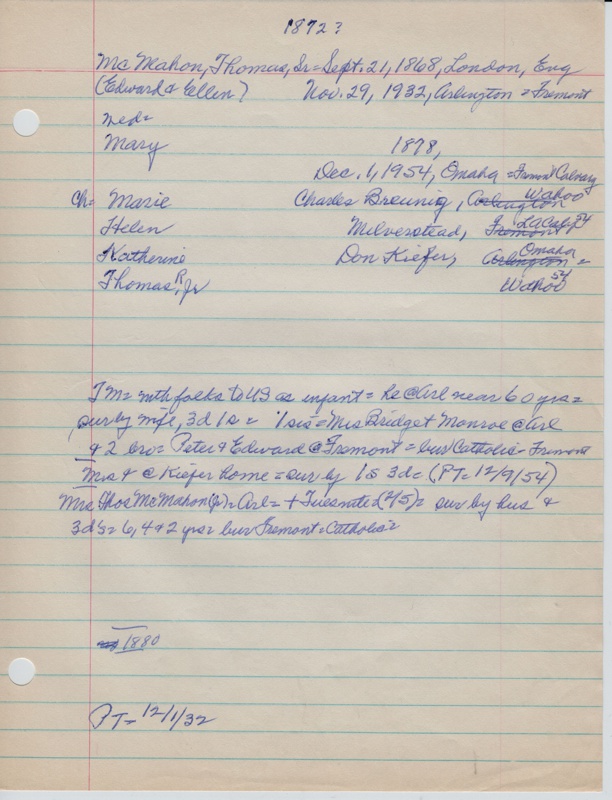 1872?
McMahon, Thomas, Sr = Sept. 21, 1868, London, Eng
(Edward & Ellen) Nov. 29, 1932, Arlington = Fremont
wed =
Mary 1878,
Dec. 1, 1954, Omaha = Fremont Calvary
Wahoo
Ch = Marie Charles Breunig, Arlington
LA Calif 54
Helen Milverstead, Fremont
Omaha
Katherine Don Kiefer, Arlington =
54
Thomas R, Jr Wahoo
TM = with folks to US as infant = he @ Arl near 60 yrs =
sur by wife, 3d 1s = 1 sis = Mrs Bridget Monroe @ Arl
& 2 bro = Peter & Edward @ Fremont = bur Catholic = Fremont
Mrs + @ Kiefer home = sur by 1s 3d = (PT = 12/9/54)
Mrs Thos McMahon (Jr) = Arl = + Tues nite d (2/5) = sur by hus &
3d's = 6, 4 & 2 yrs = bur Fremont = Catholic =
1880
PT = 12/1/32